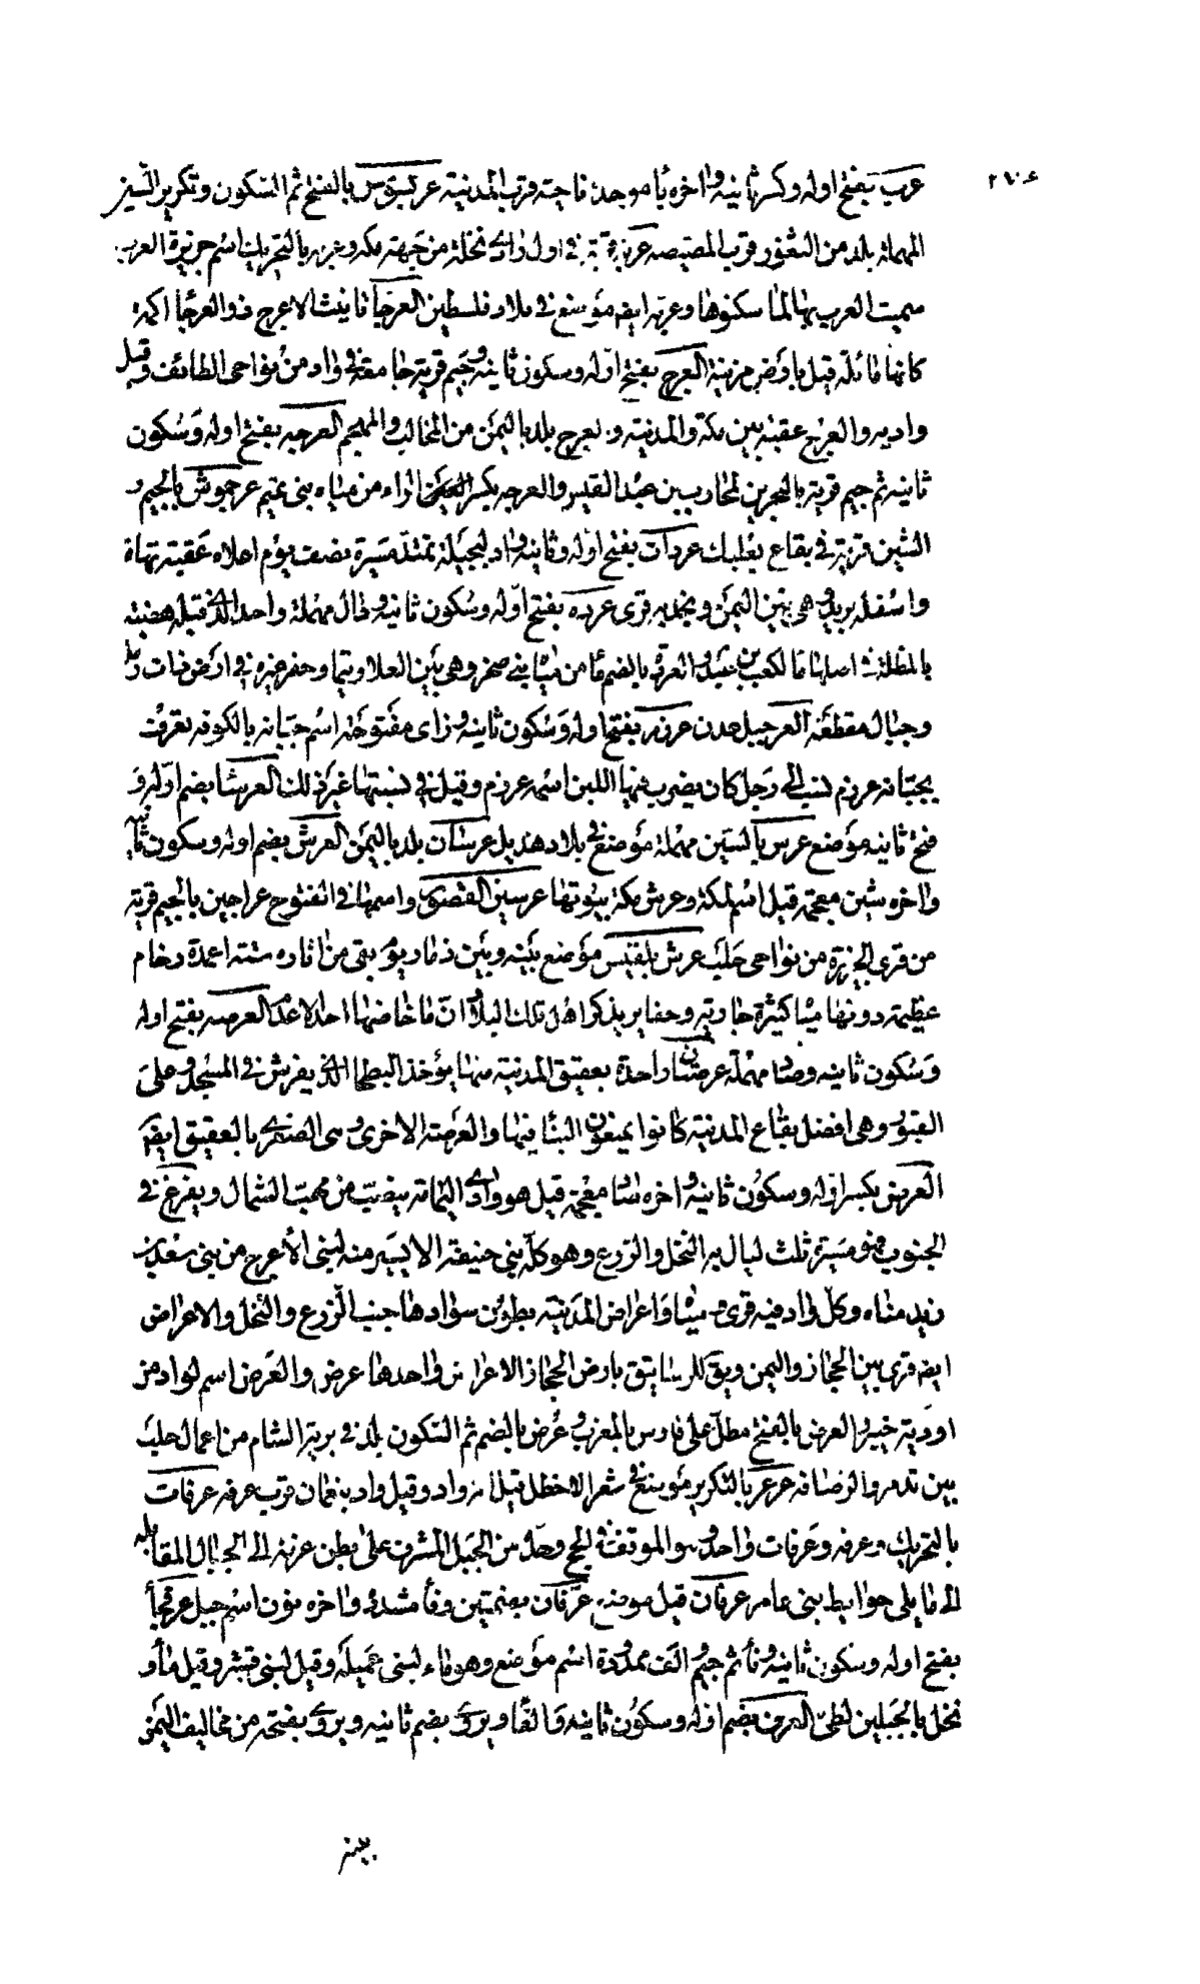 عرب بفتح اوله وكسر ثانيه واخره باء موحدة ناحية قرب المدينة عربسوس بالفتح ثم السكون وتكرير السين
المهملة بلد من الثغور قرب المصيصة عربة قرية في اول وادي نخلة من جهة مكه وعربه بالتحريك اسم جزيرة العرب
سميت العرب بها لما سكنوها وعربه ايضا موضع في بلاد فلسطين العرجا تانيث الاعرج ذو العرجا اكمة
كانها مائلة قيل بارض مزينة العرج بفتح اوله وسكون ثانيه وجيم قرية جامعة في واد من نواحى الطائف وقيل
واد به والعرج عقبة بين مكة والمدينة و العرج بلد باليمن من المخالب والمهجم العرجه بفتح اوله وسكون
ثانيه ثم جيم قرية بالبحرين لمحارب بن عبد القيس والعرجه بكسر الراء من مياه بنى نمير عرجموش بالجيم و
الشين قرية في بقاع بعلبك عردات بفتح اوله وثانيه واد لبجيلة تمتد مسيرة نصف يوم اعلاه عقبة تهامة
واسفله تربة وهى بين اليمن ونجد به قرى عرده بفتح اوله وسكون ثانيه ودال مهملة واحد الذي قبله هضبة
بالمطلة في اصلها ما لكعب بن عبد والعردة بالضم ما من مياه بني صخر وهى بين العلا وتيما وحفر عنزه في ارض ذات رمل
وجبال مقطعة العر جبل عدن عرزم بفتح اوله وسكون ثانيه وزاى مفتوحة اسم جبانه بالكوفه تعرف
بجبانه عرزم نسب الى رجل كان يضرب فيها اللبن اسمه عرزم وقيل في نسبتها غير ذلك العرسا بضم اوله و
فتح ثانيه موضع عرس بالسين مهملة موضع في بلاد هذيل عرشان بلد باليمن العرش بضم اوله وسكون ثانيه
واخره شين معجمة قيل اسم لمكة وعرش مكة بيوتها عرشين القصور واسمها في الفتوح عراجين بالجيم قرية
من قرى الجزر من نواحى حلب عرش بلقيس موضع بينه وبين ذمار يوم بقى من اثاره ستة اعمدة رخام
عظيمة دونها مياه كثيرة جارية وحفاير يذكر اهل تلك البلاد ان ما خاضها احد الا عدم العرصه بفتح اوله
وسكون ثانيه وصاد مهملة عرصتان واحدة بعقيق المدينة منها يؤخذ البطحا الذي يفرش في المسجد وعلى
القبور وهى افضل بقاع المدينة كانوا يمنعون البناء فيها والعرصة الاخرى وهى الصغرى بالعقيق ايضا
العرض بكسر اوله وسكون ثانيه واخره ضاد معجمة قيل هو وادي اليمامة ينصب من مهب الشمال ويفرغ في
الجنوب فهو مسيرة ثلث ليال به النخل والزرع وهو كله لبنى حنيفة الا يسير منه لبنى الأعرج من بنى سعد بن
زيد مناه وكل واد فيه قرى ومياه واعراض المدينة بطون سوادها حيث الزرع والنخل والاعراض
ايضا قرى بين الحجاز واليمن ويق للرساتيق بارض الحجاز الاعراض واحدها عرض والعرض اسم لواد من
اودية خيبر والعرض بالفتح مطل على فارس بالمغرب وعرض بالضم ثم السكون بلد في برية الشام من اعمال حلب
بين تدمر والرصافه عرعر بالتكرير موضع في شعر الاخطل قيل انه واد وقيل واد بنعمان قرب عرفه عرفات
بالتحريك وعرفه وعرفات واحد وهو الموقف في الحج وحده من الجبل المشرف على بطن عرنة الى الجبال المقابلة
الى ما يلى حوايط بنى عامر عرفان قيل موضع عرفان بضمتين وفاء مشدده واخره نون اسم جبل عرفجا
بفتح اوله وسكون ثانيه وفاء ثم جيم والف ممدودة اسم موضع وهو ماء لبنى عميله وقيل لبنى قشير وقيل ماء و
نخل بالجبلين لطى العرف بضم اوله وسكون ثانيه والفاء ويروى بضم ثانيه ويروى بفتحه من مخاليف اليمن